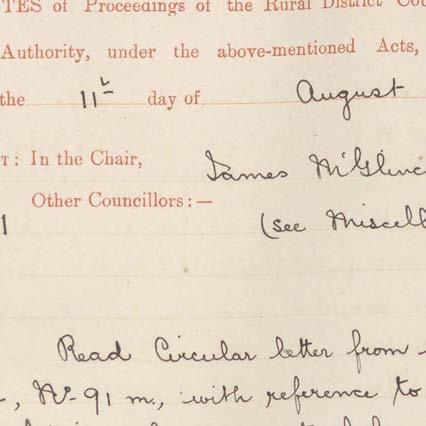 TES of Proceedings of the Rural District Cou
Authority, under the above-mentioned Acts,
the 11th day of August
T: In the Chair, James McGlinc
Other Councillors:—
(see Miscell
Read Circular letter from
, No. 91 m., with reference to